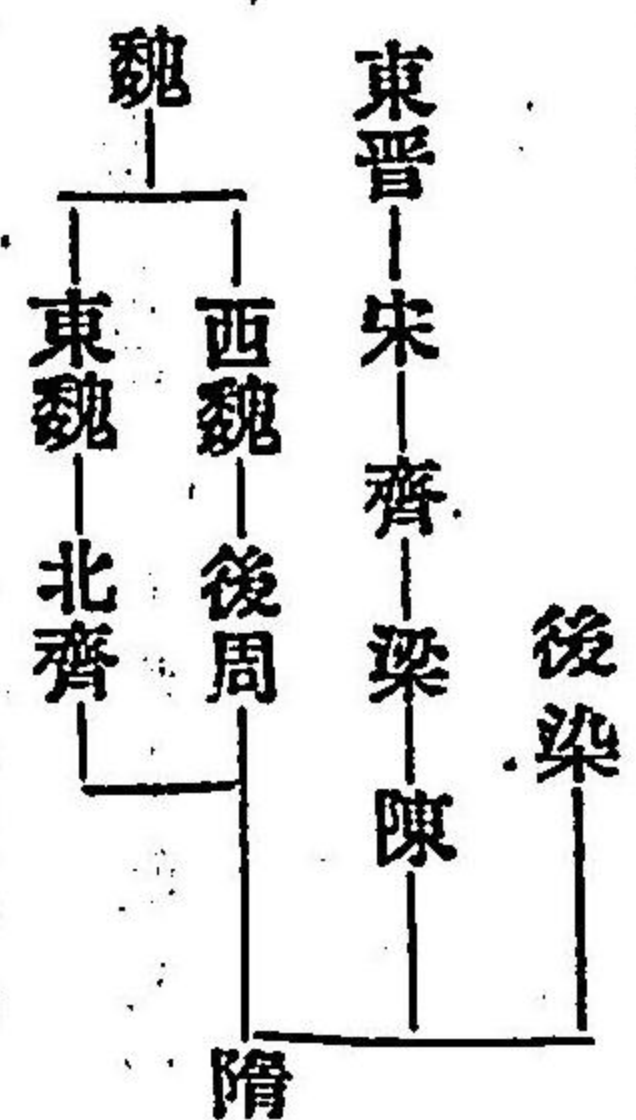 後染
東晋
宋
齊
梁
陳
魏
西魏
後周
東魏
北齊
隋